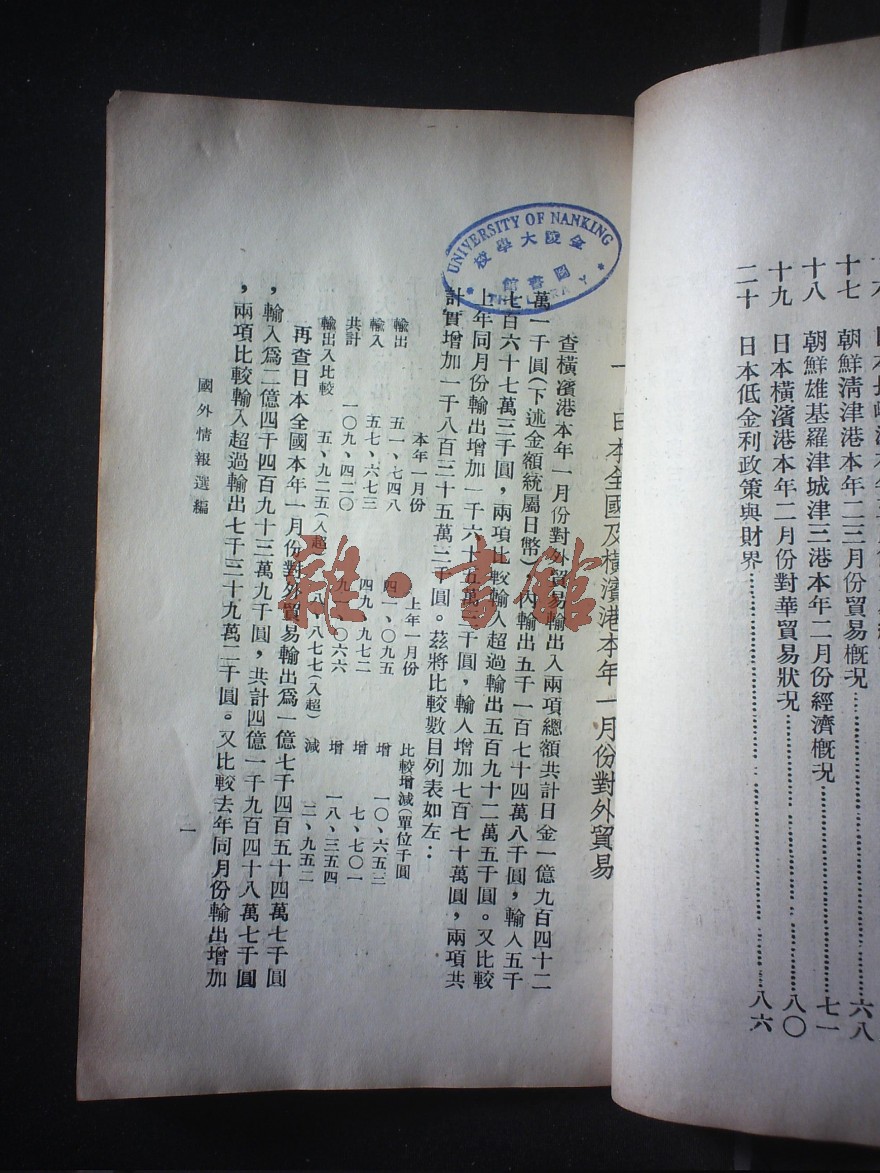 十七 朝鮮淸津港本年二三月份貿易槪況……六八
十八 朝鮮雄基羅津城津三港本年二月份經濟槪況……七一
十九 日本橫濱港本年二月份對華貿易狀況……八〇
二十 日本低金利政策與財界……八六
UNIVERSITY OF NANKING
金陵大學校
圖書館
一 日本全國及橫濱港本年一月份對外貿易
查橫濱港本年一月份對外貿易輸出入兩項總額共計日金一億九百四十二
萬一千圓(下述金額統屬日幣)內輸出五千一百七十四萬八千圓,輸入五千
七百六十七萬三千圓,兩項比較輸入超過輸出五百九十二萬五千圓。又比較
上年同月份輸出增加一千六十五萬三千圓,輸入增加七百七十萬圓,兩項共
計實增加一千八百三十五萬三千圓。茲將比較數目列表如左:
本年一月份 上年一月份 比較增減(單位千圓)
輸出 五一、七四八 四一、〇九五 增 一〇、六五三
輸入 五七、六七三 四九、九七二 增 七、七〇一
共計 一〇九、四二〇 九一、〇六六 增 一八、三五四
輸出入比較 五、九二五(入超) 八、八七七(入超) 減 二、九五二
再查日本全國本年一月份對外貿易輸出爲一億七千四百五十四萬七千圓
,輸入爲二億四千四百九十三萬九千圓,共計四億一千九百四十八萬七千圓
,兩項比較輸入超過輸出七千三十九萬二千圓。又比較去年同月份輸出增加
國外情報選編
一
雜·書館